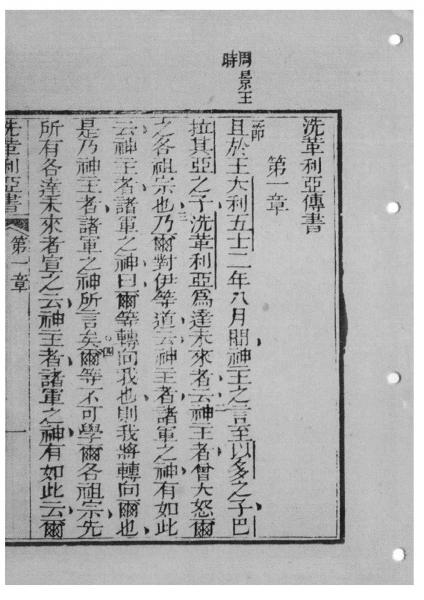 周景王
時
洗革利亞傳書
第一章
一節
且於王大利五士二年八月間神王之言至以多之子巴
拉其亞之子洗革利亞爲達未來者云二神王者曾大怒爾
之各祖宗也三乃爾對伊等道云神王者諸軍之神有如此
云神王者諸軍之神曰爾等轉向我也則我將轉向爾也
是乃神王者諸軍之神所言矣四爾等不可學爾各祖宗先
所有各達未來者宣之云神王者諸軍之神有如此云爾
洗革利亞書
第一章
一